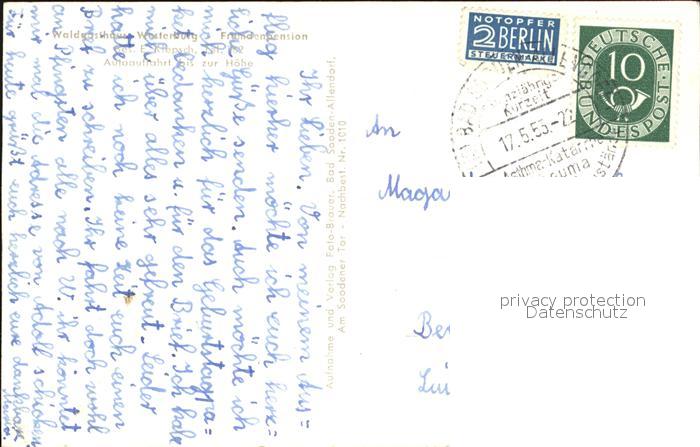 Waldgasthaus Westerburg - Fremdenpension
Autoauffahrt bis zur Höhe
Ihr Lieben. Von meinem Aus=
flug hierher möchte ich euch herz=
liche Grüße senden. Auch möchte ich
mich herzlich für das Geburtstagspa=
ket bedanken u. für den Brief. Ich habe
mich über alles sehr gefreut. Leider
hatte ich noch keine Zeit euch einen
Brief zu schreiben. Ihr fahrt doch wohl
an Pfingsten alle nach W. ihr könntet
mir mal die Adresse von Adolf schicken.
Für heute grüßt euch herzlich eure dankbare
Aufnahme und Verlag Foto-Brauer, Bad Sooden-Allendorf.
Am Soodener Tor - Nachbest. Nr. 1010
NOTOPFER
2 BERLIN
STEUERMARKE
DEUTSCHE
BUNDESPOST
10
Kurzeit
17.5.55.-22
Asthma-Katarrhe
An
Maga
privacy protection
Datenschutz